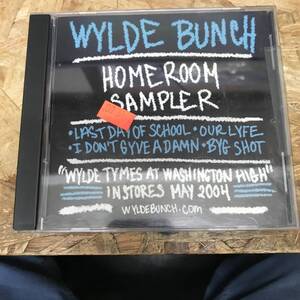 WYLDE BUNCH
HOMEROOM
SAMPLER
•LAST DAY OF SCHOOL •OUR LYFE
•I DON'T GYVE A DAMN •BYG SHOT
"WYLDE TYMES AT WASHINGTON HIGH"
IN STORES MAY 2004
WYLDEBUNCH.COM